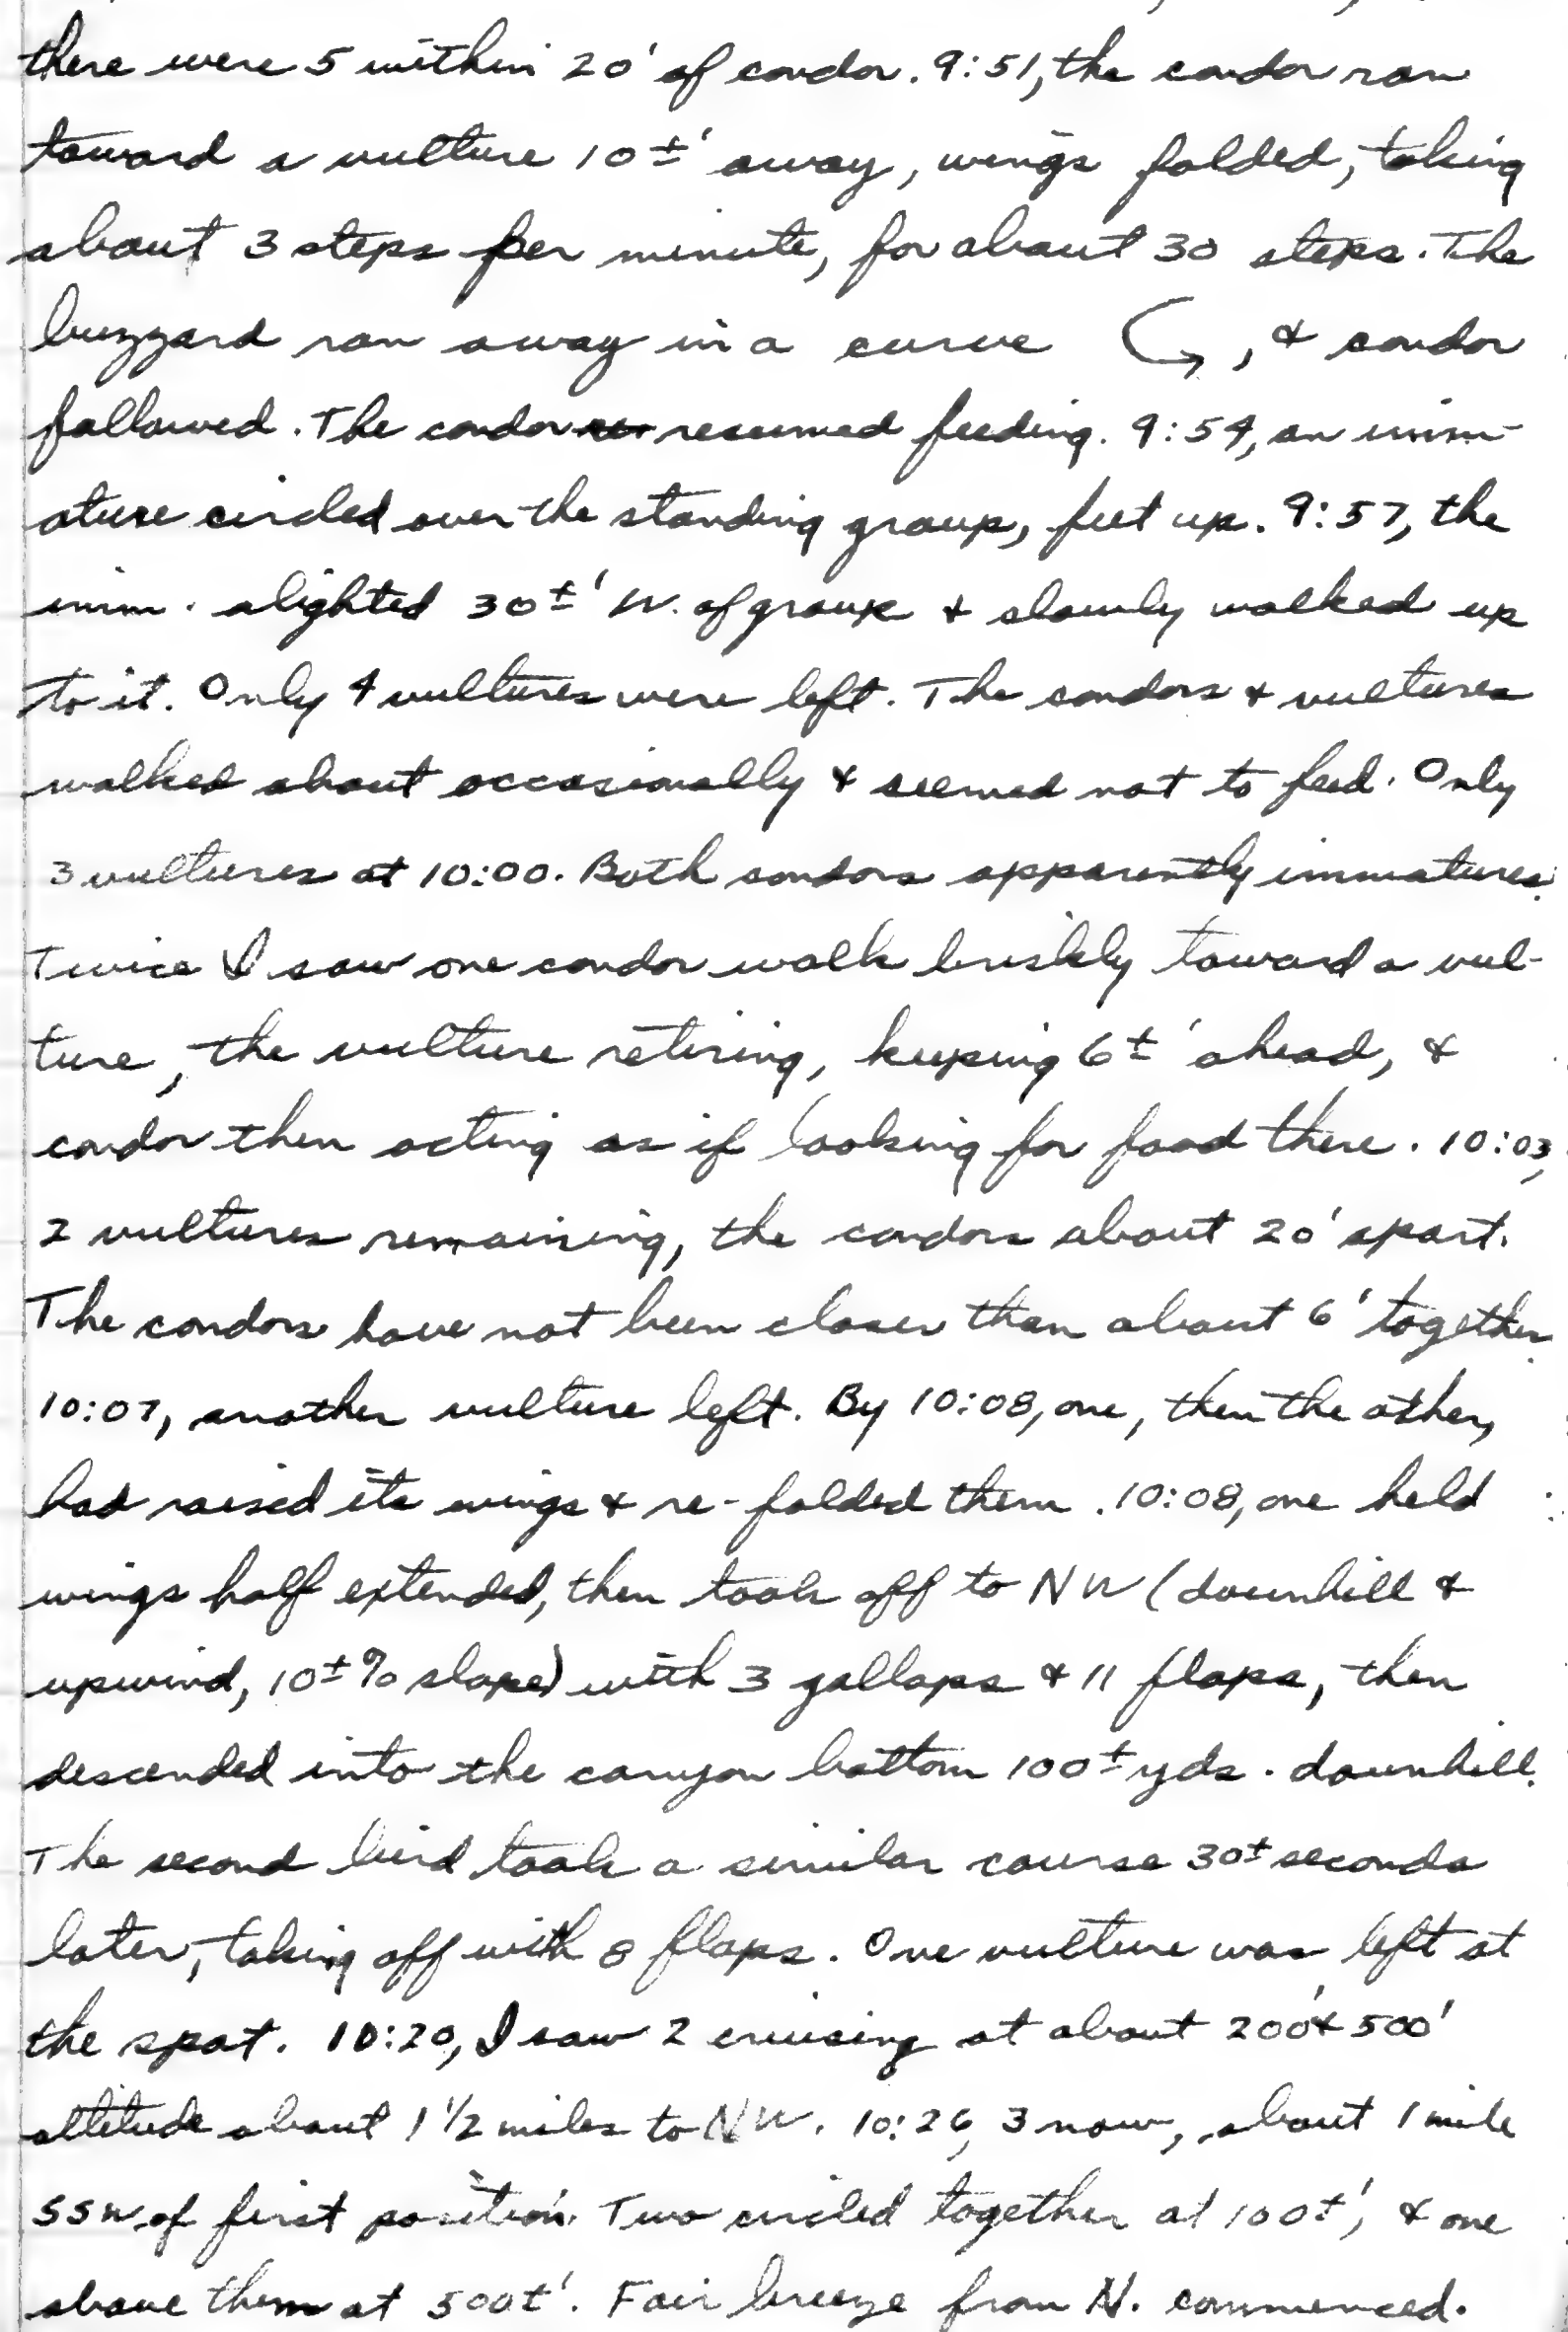 there were 5 within 20' of condor. 9:51, the condor ran
toward a vulture 10±' away, wings folded, taking
about 3 steps per minute, for about 30 steps. The
buzzard ran away in a curve , & condor
followed. The condor resumed feeding. 9:54, an imm-
ature circled over the standing group, feet up. 9:57, the
imm. alighted 30±' W. of group & slowly walked up
to it. Only 4 vultures were left. The condors & vultures
walked about occasionally & seemed not to feed. Only
3 vultures at 10:00. Both condors apparently immatures.
Twice I saw one condor walk briskly toward a vul-
ture, the vulture retiring, keeping 6±' ahead, &
condor then acting as if looking for food there. 10:03,
2 vultures remaining, the condors about 20' apart.
The condors have not been closer than about 6' together.
10:07, another vulture left. By 10:08, one, then the other,
had raised its wings & re-folded them. 10:08, one held
wings half extended, then took off to NW (downhill &
upwind, 10±% slope) with 3 gallops & 11 flaps, then
descended into the canyon bottom 100± yds. downhill.
The second bird took a similar course 30± seconds
later, taking off with 8 flaps. One vulture was left at
the spot. 10:20, I saw 2 cruising at about 200' & 500'
altitude about 1 1/2 miles to NW. 10:26, 3 now, about 1 mile
SSW. of first position. Two circled together at 100±', & one
above them at 500±'. Fair breeze from N. commenced.